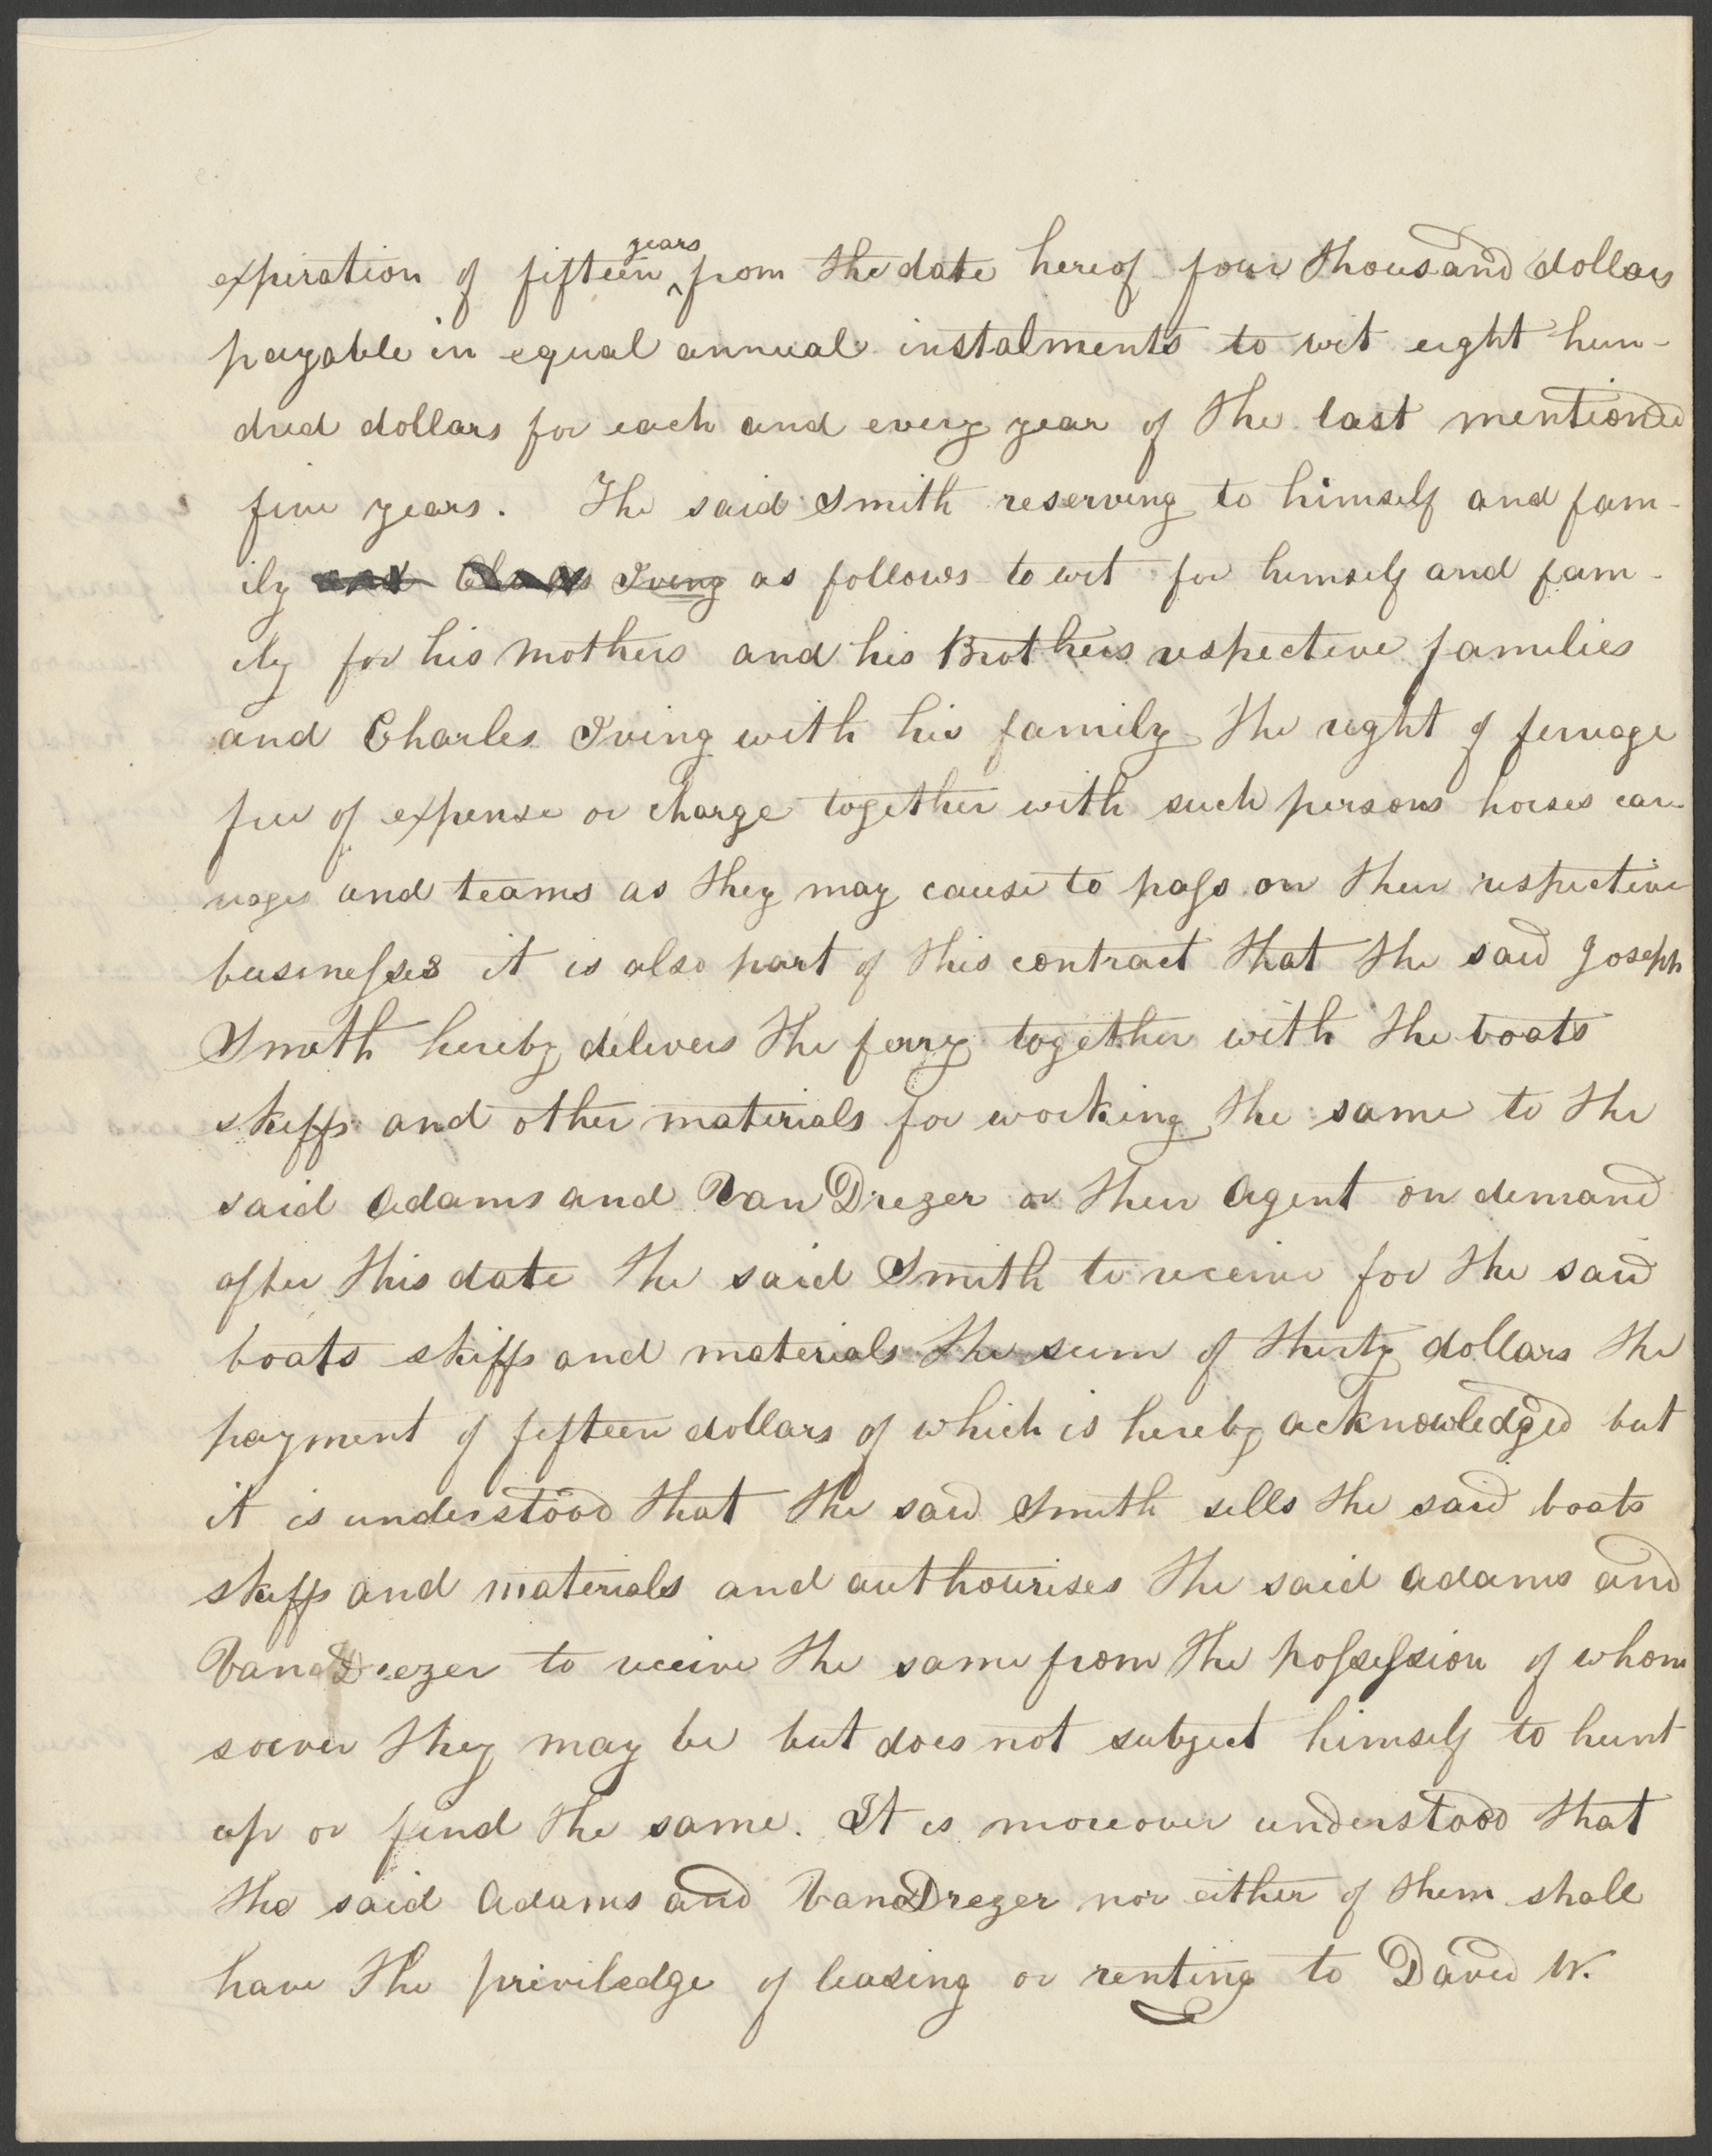 expiration of fifteen years from the date hereof four thousand dollars
payable in equal annual instalments to wit eight hun-
dred dollars for each and every year of the last mentioned
five years. The said Smith reserving to himself and fam-
ily and Charles Iving as follows to wit for himself and fam-
ily for his mothers and his Brothers respective families
and Charles Iving with his family the right of ferriage
free of expense or charge together with such persons horses car-
riages and teams as they may cause to pass on their respective
businesses it is also part of this contract that the said Joseph
Smith hereby delivers the ferry together with the boats
skiffs and other materials for working the same to the
said Adams and Van Drezer or their Agent on demand
after this date the said Smith to receive for the said
boats skiffs and materials the sum of thirty dollars the
payment of fifteen dollars of which is hereby acknowledged but
it is understood that the said Smith sells the said boats
skiffs and materials and authourises the said Adams and
Van Drezer to receive the same from the possession of whom
soever they may be but does not subject himself to hunt
up or find the same. It is moreover understood that
the said Adams and Van Drezer nor either of them shall
have the priviledge of leasing or renting to David W.